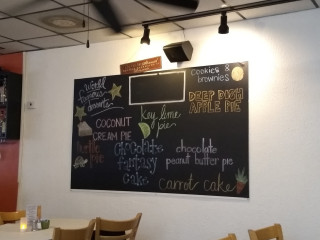 world
famous
desserts
cookies &
brownies
DEEP DISH
APPLE PIE
key lime
pie
COCONUT
CREAM PIE
turtle
pie
chocolate
fantasy
cake
chocolate
peanut butter pie
carrot cake